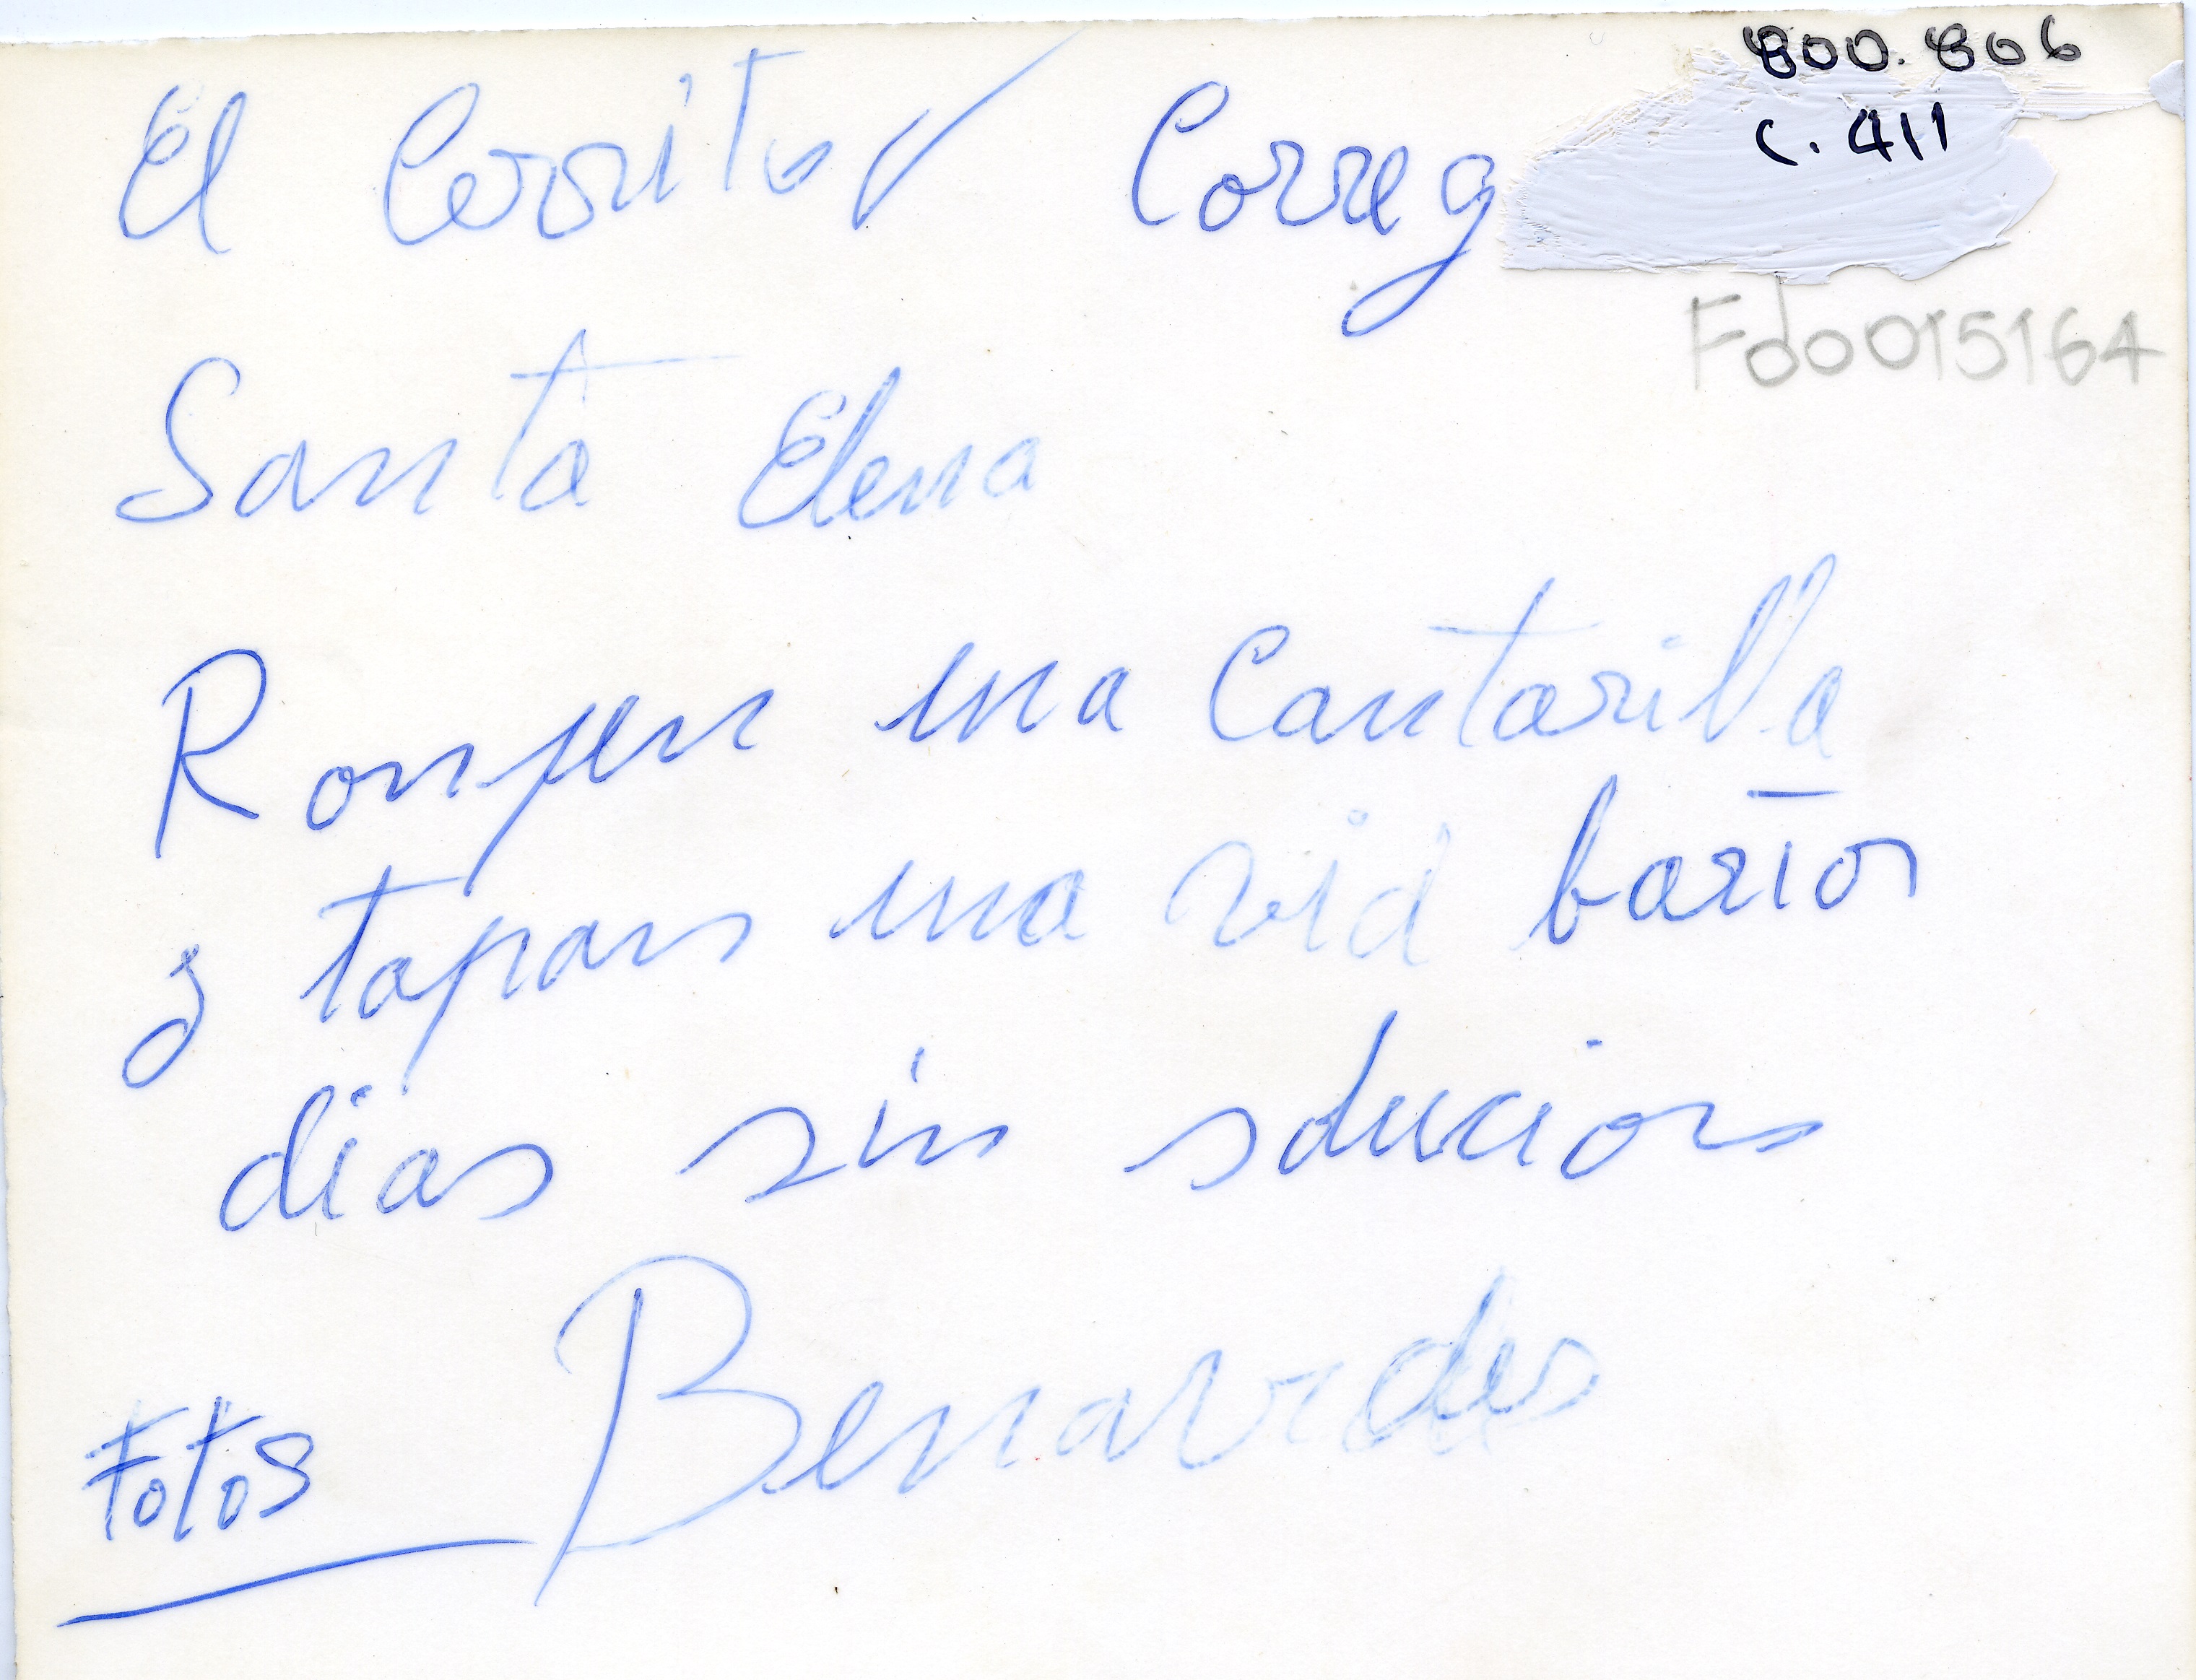 800.806
C. 411
El Cerrito Correg
Fd0015164
Santa Elena
Rompen una Cantarilla
y tapan una vid barios
dias sin solucion
Fotos Benavides